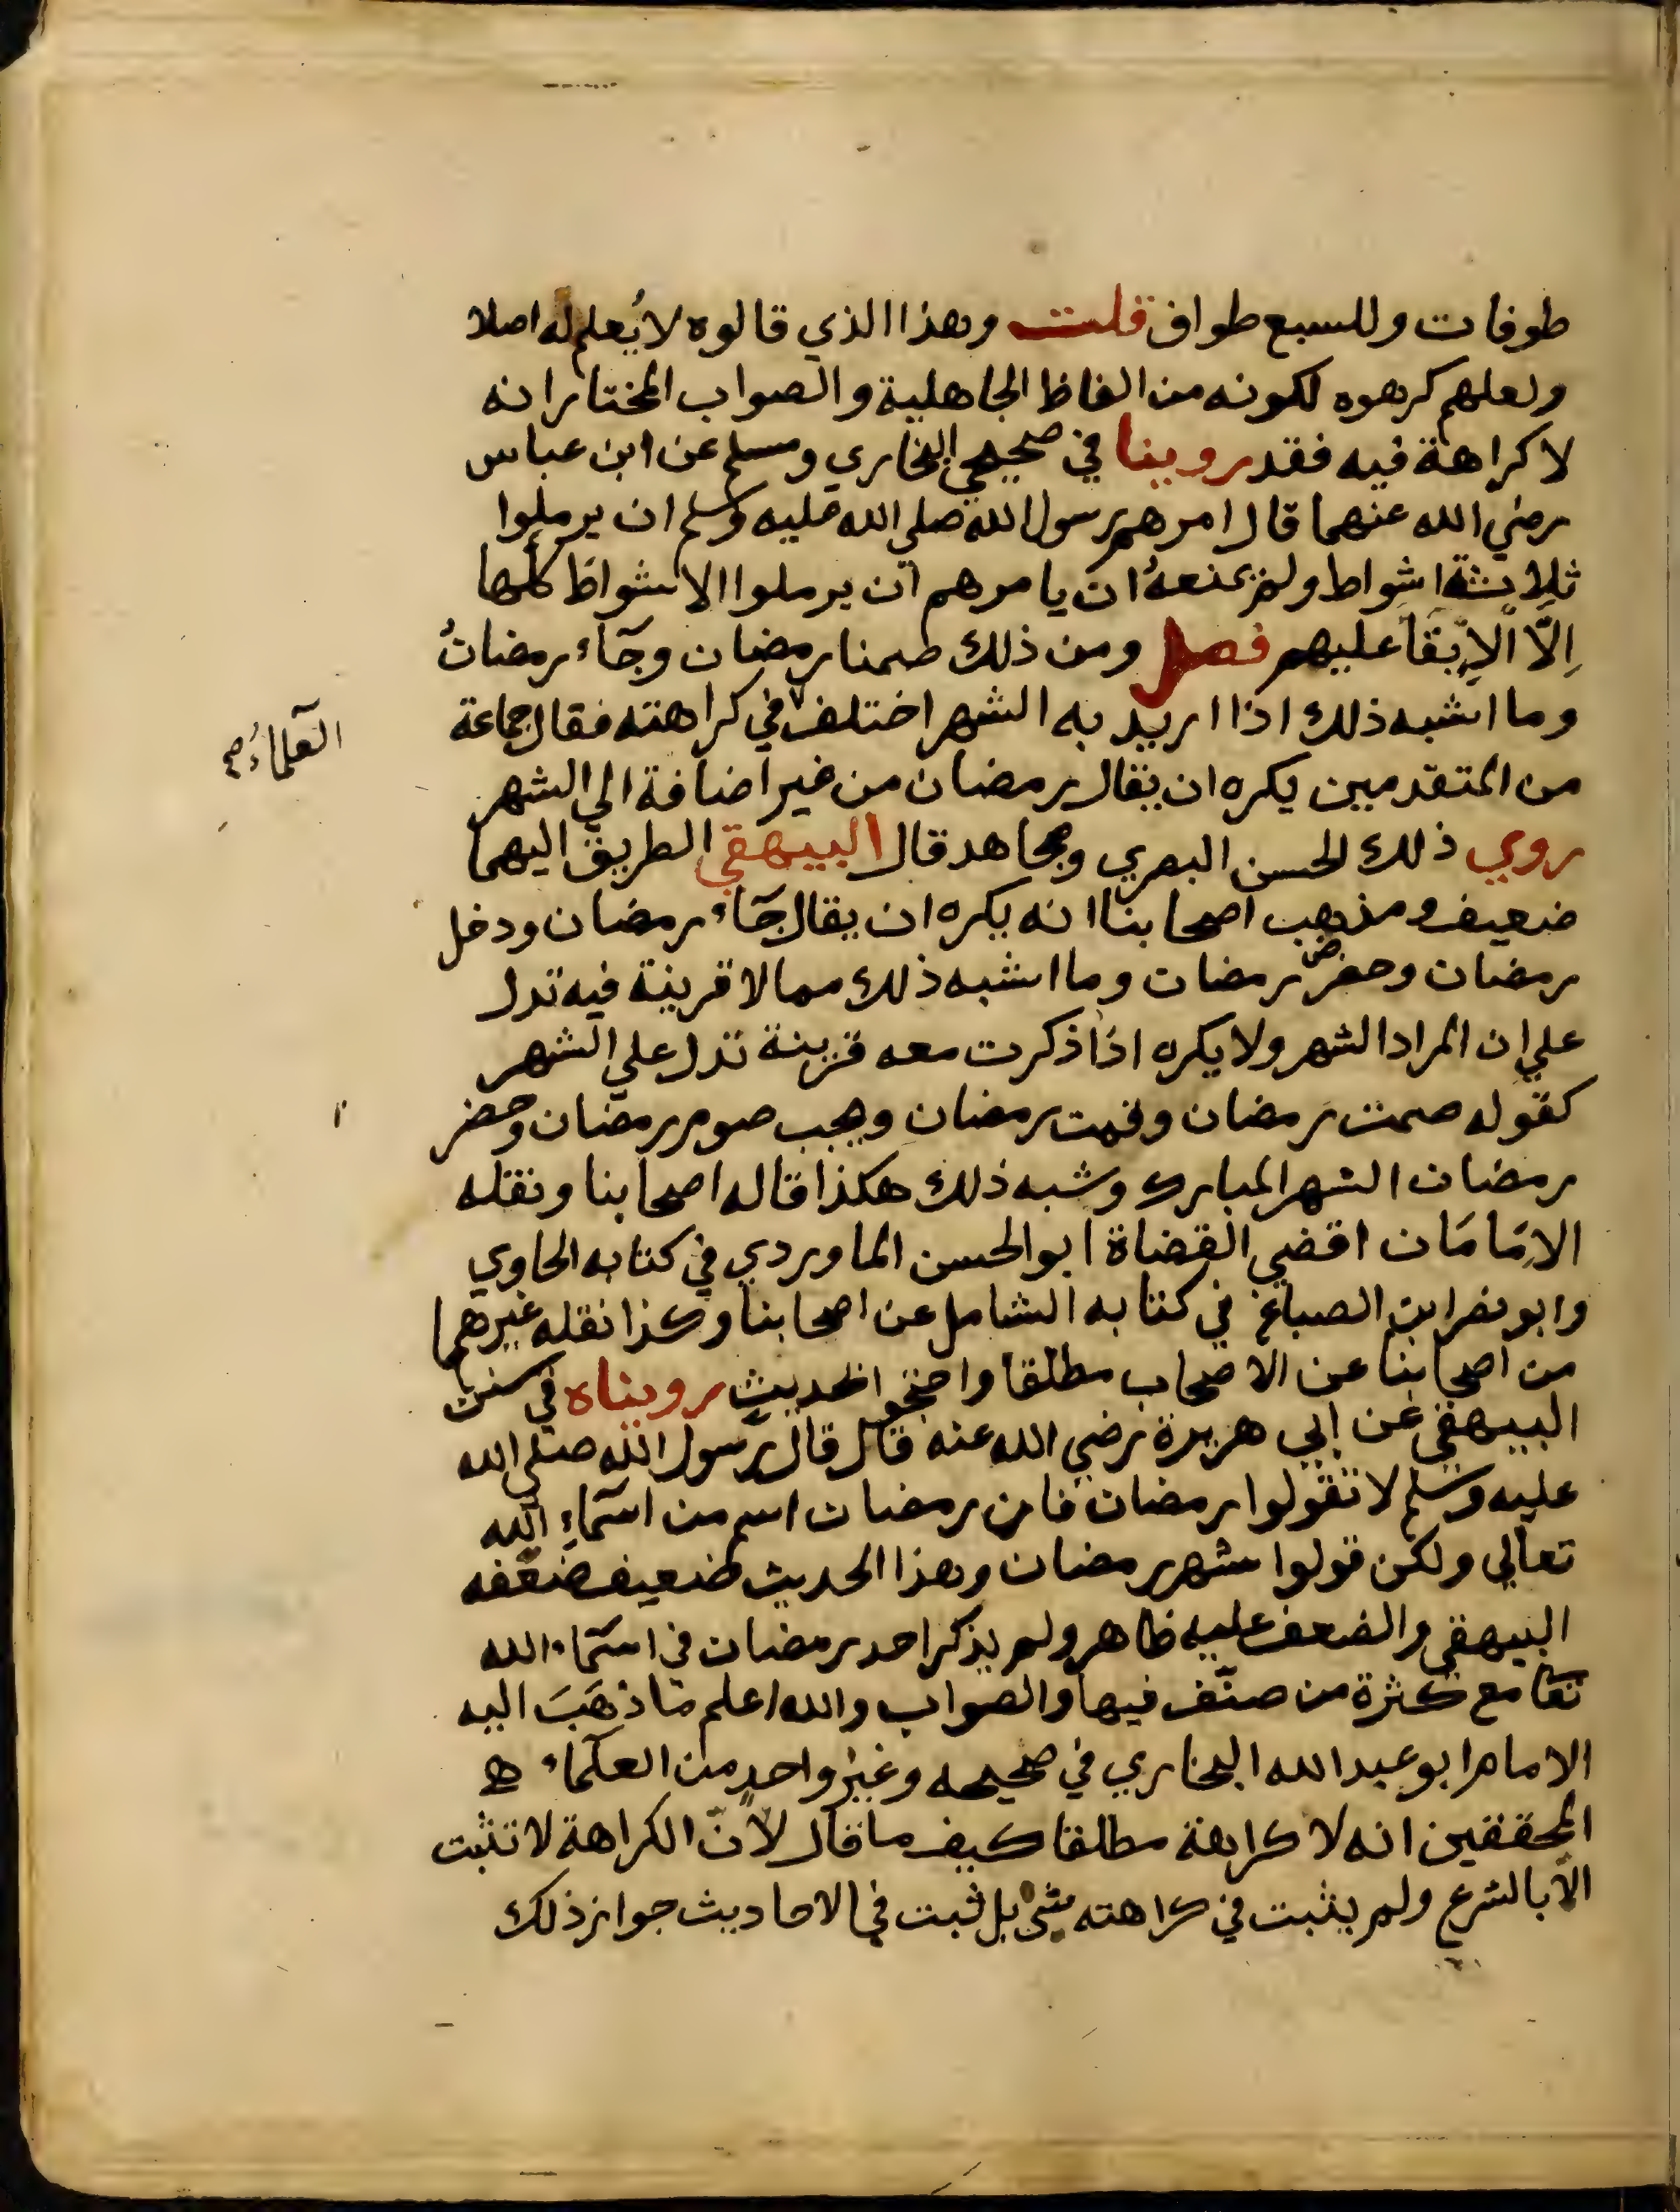 طوفات وللسبع طواف قلت وهذا الذي قالوه لا يُعلم له اصلا
ولعلهم كرهوه لكونه من الفاظ الجاهلية والصواب المختار انه
لا كراهة فيه فقد روينا في صحيحي البخاري ومسلم عن ابن عباس
رضي الله عنهما قال امرهم رسول الله صلي الله عليه وسلم ان يرملوا
ثلاثة اشواط ولم يمنعهُ ان يامرهم ان يرملوا الاشواط كلها
اِلّا الاِبقآ عليهم فصل ومن ذلك صمنا رمضان وجآء رمضانُ
وما اشبه ذلك اذا اريد به الشهر اختلف في كراهته فقال جماعة
العلمآءُ صح
من المتقدمين يكره ان يقال رمضان من غير اضافة الي الشهر
روي ذلك الحسن البصري ومجاهد قال البيهقي الطريق اليهما
ضعيف ومذهب اصحابنا انه يكره ان يقال جآء رمضان ودخل
رمضان وحضر رمضان وما اشبه ذلك مما لا قرينة فيه تدل
علي ان المراد الشهر ولا يكره اذا ذكرت معه قرينة تدل علي الشهر
كقوله صمت رمضان وقمت رمضان ويجب صوم رمضان وحضر
رمضان الشهر المبارك وشبه ذلك هكذا قاله اصحابنا ونقله
الاِمَامَان اقضي القضاة ابو الحسن الماوردي في كتابه الحاوي
وابو نصر ابن الصباغ في كتابه الشامل عن اصحابنا وكذا نقله غيرهما
من اصحابنا عن الاصحاب مطلقا واحتجوا بحديث رويناه في سنن
البيهقي عن ابي هريرة رضي الله عنه قال قال رسول الله صلي الله
عليه وسلم لا تقولوا رمضان فان رمضان اسم من اسمآءِ الله
تعالي ولكن قولوا شهر رمضان وهذا الحديث ضعيف ضعّفه
البيهقي والضعف عليه ظاهر ولم يذكر احد رمضان في اسمآء الله
تعا مع كثرة من صنّف فيها والصواب والله اعلم ما ذهَبَ اليه
الامام ابو عبد الله البخاري في صحيحه وغير واحد من العلمآء
المحققين انه لا كراهة مطلقا كيف ما قال لانّ الكراهة لا تثبت
الّا بالشرع ولم يثبت في كراهته شي بل ثبت في الاحاديث جواز ذلك